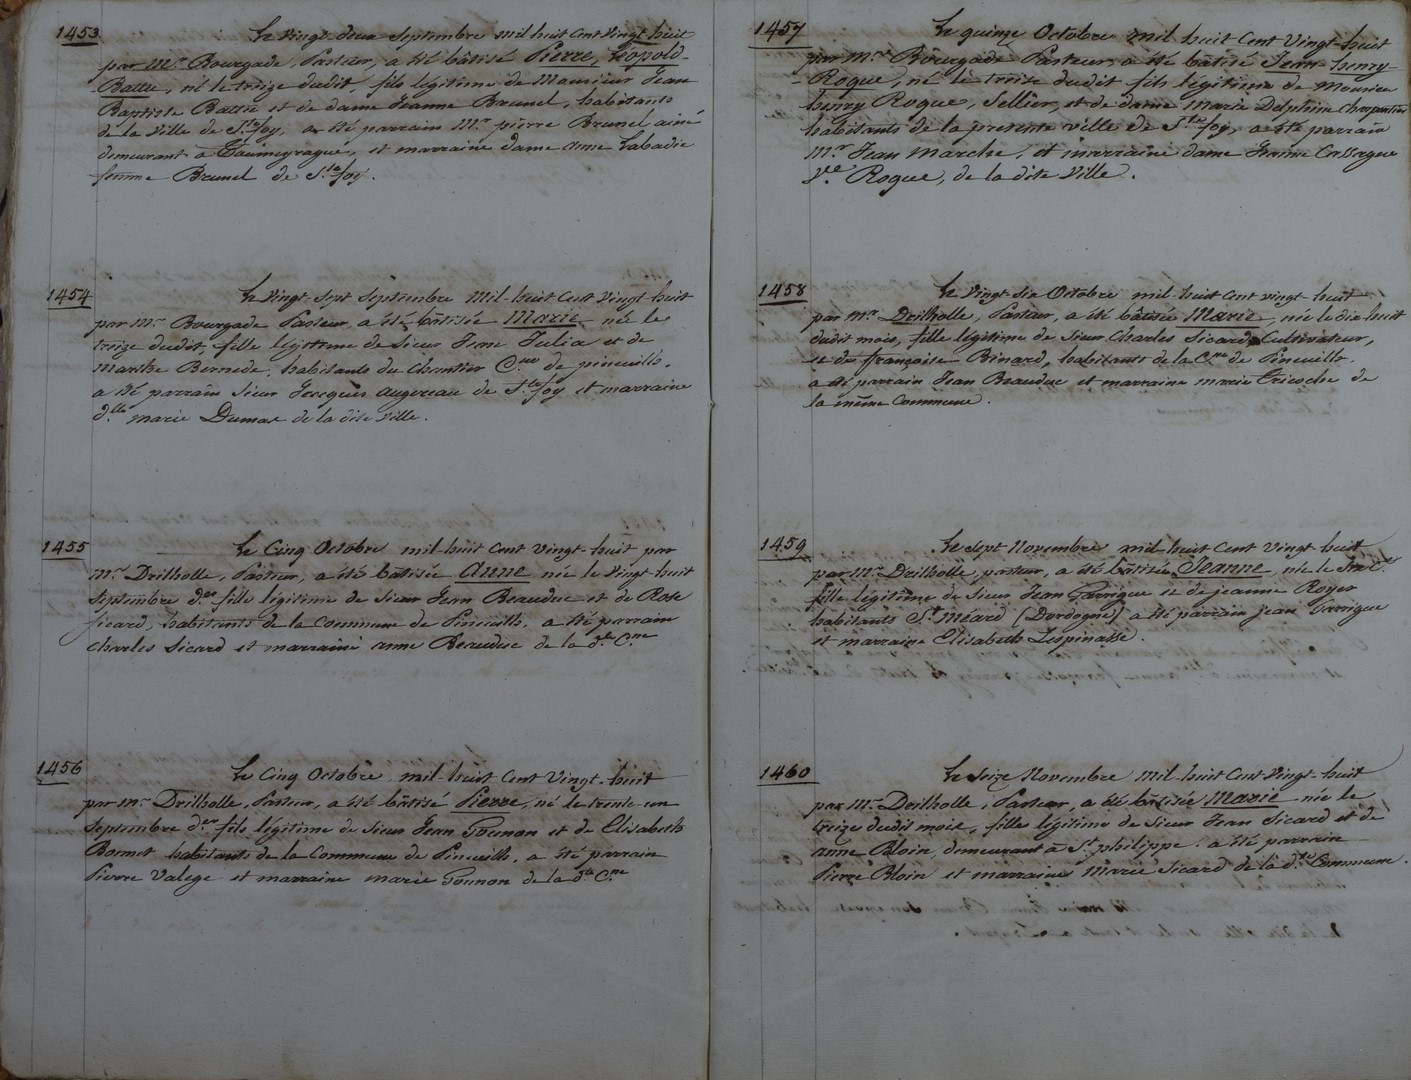 1453
Le Vingt-deux Septembre mil huit Cent Vingt-huit
par Mr. Bourgade, Pasteur, a été bâtisé Pierre, Léopold-
Battu, né le treize dudit, fils légitime de Monsieur Jean
Baptiste Battu et de dame Jeanne Brunel, habitants
de la Ville de Ste foy, a été parrain Mr. pierre Brunel ainé
demeurant à et marraine dame anne Labadie
femme Brunel de Ste foy.
1454
Le Vingt-Sept Septembre Mil-huit Cent Vingt-huit
par Mr. Bourgade Pasteur, a été bâtisée Marie née le
treize dudit, fille légitime de Sieur Jean Julia et de
Marthe Bernede, habitants du Chantier Cne de pineuilh.
a été parrain Sieur Jacques augereau de Ste foy et marraine
dlle marie Dumas de la dite Ville.
1455
Le Cinq Octobre mil-huit Cent Vingt-huit par
Mr. Drilholle, Pasteur, a été bâtisée Anne née le Vingt-huit
Septembre der fille légitime de Sieur Jean Beauduc et de Rose
Sicard, habitants de la Commune de Pineuilh, a été parrain
Charles Sicard et marraine anne Beauduc de la de Cne
1456
Le Cinq Octobre mil-huit Cent Vingt-huit
par Mr. Drilholle, Pasteur, a été bâtisé Pierre, né le trente-un
Septembre der fils légitime de Sieur Jean Gounon et de Elisabeth
Bonnet habitants de la Commune de Pineuilh, a été parrain
Pierre Valege et marraine marie Gounon de la de Cne
1457
Le quinze Octobre mil huit Cent Vingt-huit
par Mr. Bourgade Pasteur, a été bâtisé Jean-henry-
Roque, né le treize dudit fils légitime de Maurice
henry Roque, Sellier, et de dame Marie Delphine Charpentier
habitants de la présente ville de Ste foy, a été parrain
Mr. Jean Marche, et marraine dame Jeanne Cassagne
Vve Roque, de la dite Ville.
1458
Le Vingt-Six Octobre mil-huit Cent vingt-huit
par Mr Drilholle, Pasteur, a été bâtisée Marie, née le dix huit
dudit mois, fille légitime de Sieur Charles Sicard Cultivateur,
et de françoise Binard, habitants de la Cne de Pineuilh.
a été parrain Jean Beauduc et marraine marie Tricoche de
la même Commune.
1459
Le Sept Novembre mil-huit Cent Vingt-huit
par Mr. Drilholle, pasteur, a été bâtisée Jeanne, née le
fille légitime de Sieur Jean Garrigue et de jeanne Royer
habitants St Méard (Dordogne) a été parrain jean Garrigue
et marraine Elisabeth Lespinasse.
1460
Le Seize Novembre Mil-huit Cent Vingt-huit
par Mr. Drilholle, Pasteur, a été bâtisée Marie née le
treize dudit mois, fille légitime de Sieur Jean Sicard et de
anne Bloin, demeurant à St philippe. a été parrain
Pierre Bloin et marraine Marie Sicard de la dte Commune.